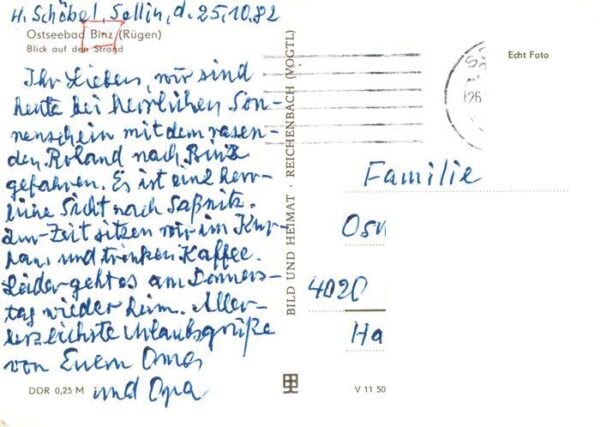 H. Schöbel, Sellin, d. 25.10.82
Ostseebad Binz (Rügen)
Blick auf den Strand
Echt Foto
Ihr Lieben, wir sind
heute bei herrlichen Son-
nenschein mit dem rasen-
den Roland nach Binz
gefahren. Es ist eine herr-
liche Sicht nach Saßnitz.
Zur Zeit sitzen wir im Kur-
haus und trinken Kaffee.
Leider geht es am Donners-
tag wieder heim. Aller-
herzlichste Urlaubsgrüße
von Euern Oma
und Opa
BILD UND HEIMAT · REICHENBACH (VOGTL)
Familie
4020
Ha
DDR 0,25 M
V 11 50